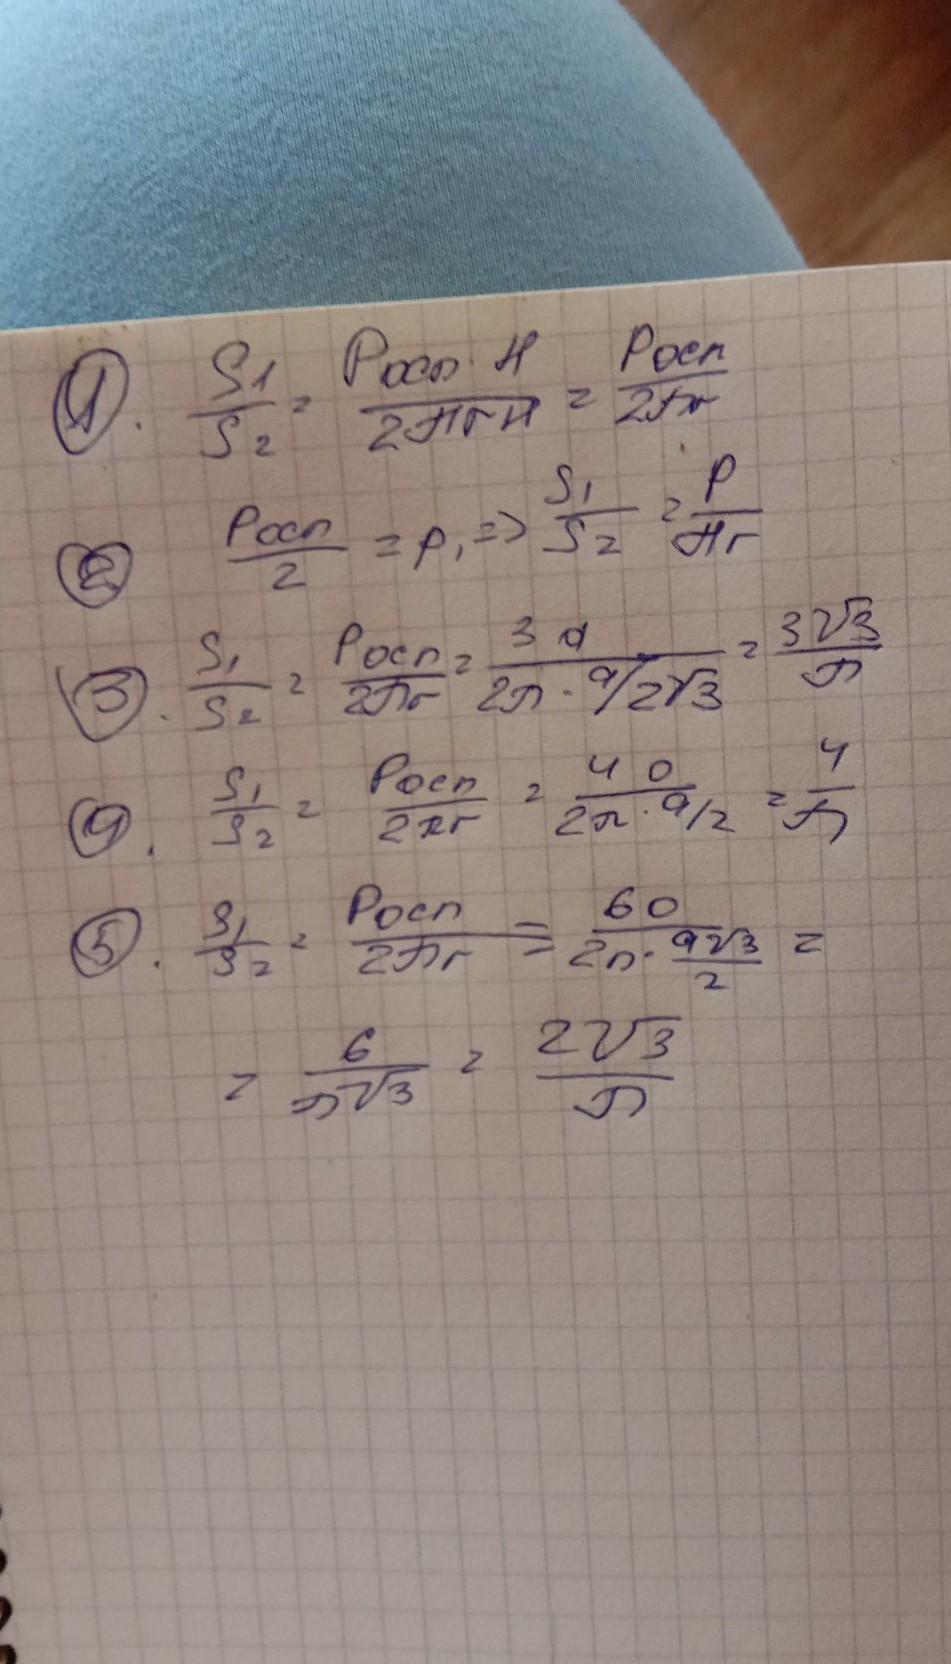 1. S1/S2 = Pосн · H / 2πrH = Pосн / 2πr
2 Pосн/2 = p, => S1/S2 = P/πr
3. S1/S2 = Pосн/2πr = 3a / 2π · a/2√3 = 3√3/π
4. S1/S2 = Pосн/2πr = 4a / 2π · a/2 = 4/π
5. S1/S2 = Pосн/2πr = 6a / 2π · a√3/2 =
= 6/π√3 = 2√3/π